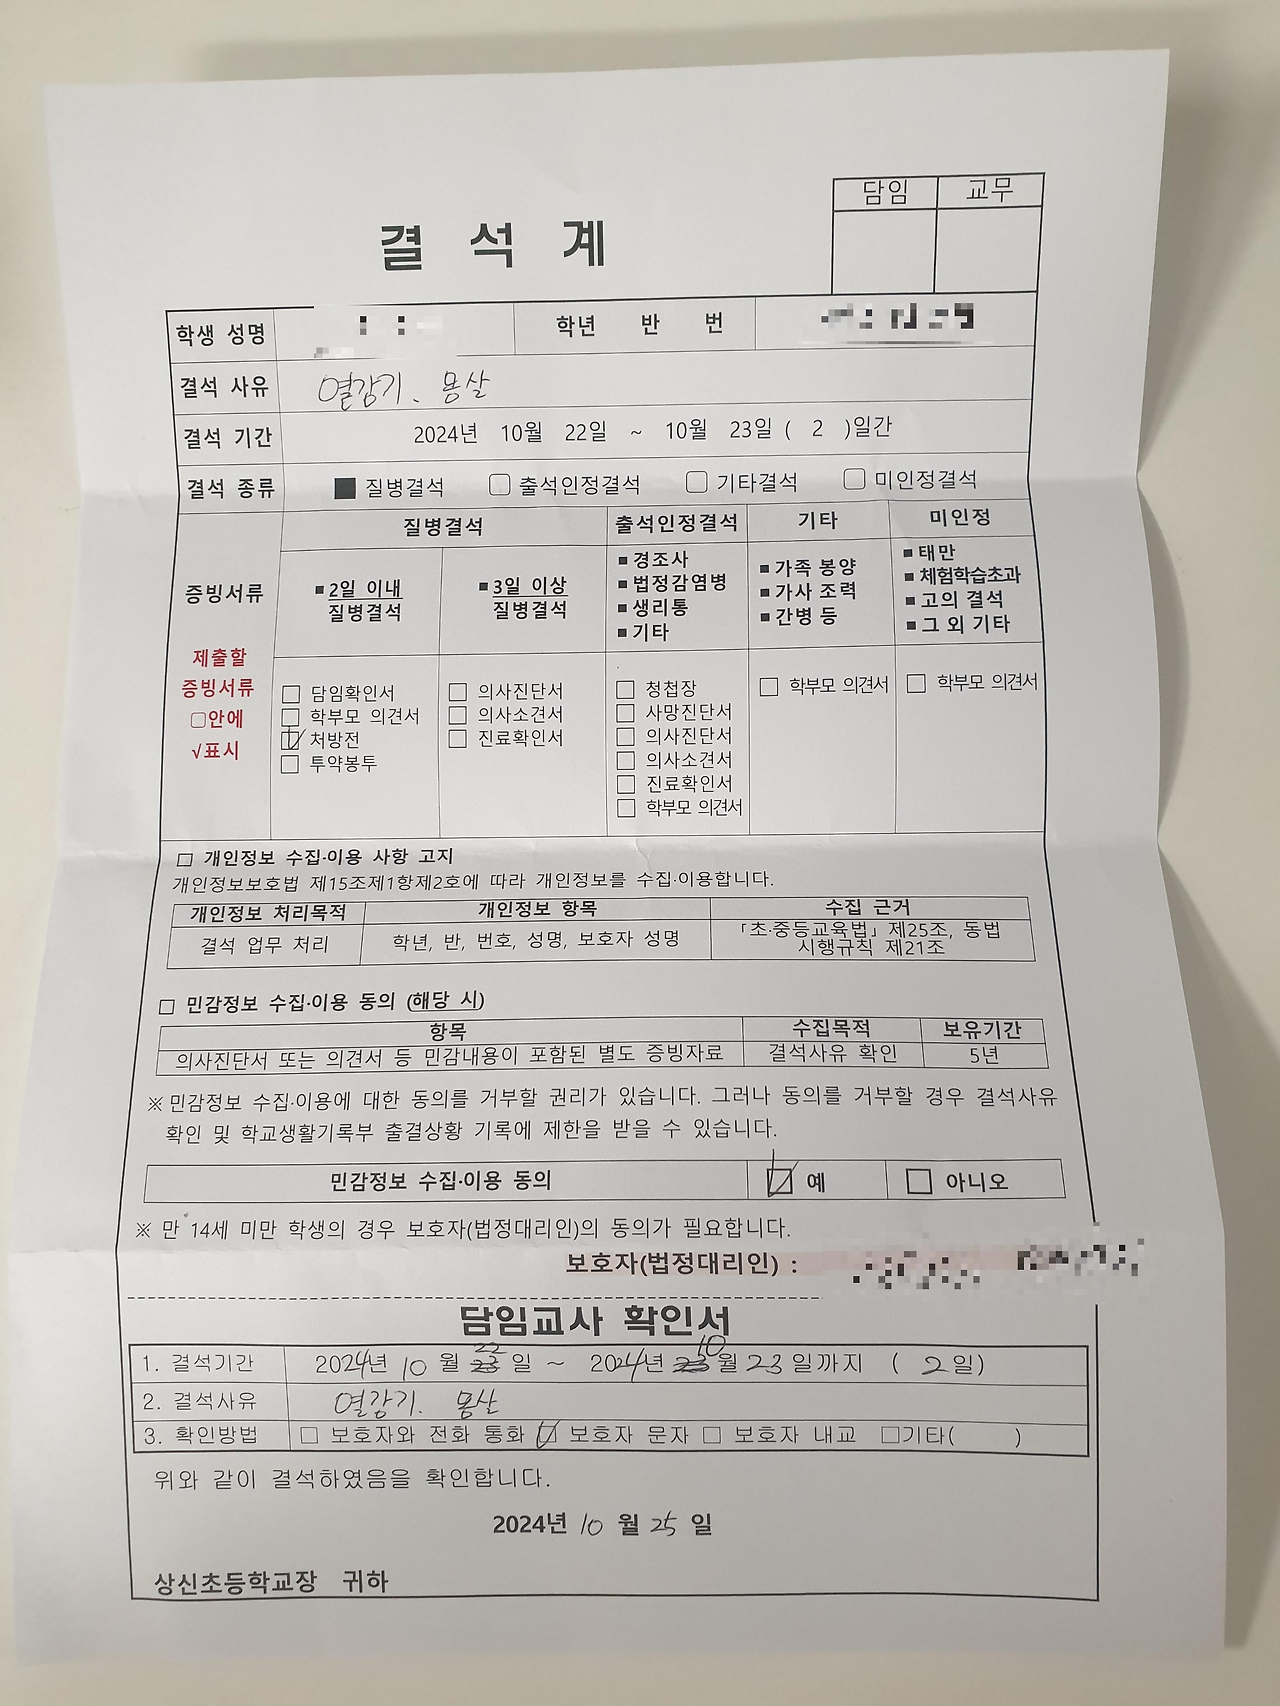 담임 교무
결 석 계
학생 성명 학년 반 번
결석 사유 열감기. 몸살
결석 기간 2024년 10월 22일 ~ 10월 23일 ( 2 )일간
결석 종류 ■ 질병결석 □ 출석인정결석 □ 기타결석 □ 미인정결석
증빙서류
제출할
증빙서류
▢안에
√표시
질병결석 출석인정결석 기타 미인정
▪ 2일 이내
질병결석
▪ 3일 이상
질병결석
▪ 경조사
▪ 법정감염병
▪ 생리통
▪ 기타
▪ 가족 봉양
▪ 가사 조력
▪ 간병 등
▪ 태만
▪ 체험학습초과
▪ 고의 결석
▪ 그 외 기타
□ 담임확인서
□ 학부모 의견서
☑ 처방전
□ 투약봉투
□ 의사진단서
□ 의사소견서
□ 진료확인서
□ 청첩장
□ 사망진단서
□ 의사진단서
□ 의사소견서
□ 진료확인서
□ 학부모 의견서
□ 학부모 의견서
□ 학부모 의견서
□ 개인정보 수집·이용 사항 고지
개인정보보호법 제15조제1항제2호에 따라 개인정보를 수집·이용합니다.
개인정보 처리목적 개인정보 항목 수집 근거
결석 업무 처리 학년, 반, 번호, 성명, 보호자 성명 「초·중등교육법」 제25조, 동법
시행규칙 제21조
□ 민감정보 수집·이용 동의 (해당 시)
항목 수집목적 보유기간
의사진단서 또는 의견서 등 민감내용이 포함된 별도 증빙자료 결석사유 확인 5년
※ 민감정보 수집·이용에 대한 동의를 거부할 권리가 있습니다. 그러나 동의를 거부할 경우 결석사유
확인 및 학교생활기록부 출결상황 기록에 제한을 받을 수 있습니다.
민감정보 수집·이용 동의 ☑ 예 □ 아니오
※ 만 14세 미만 학생의 경우 보호자(법정대리인)의 동의가 필요합니다.
보호자(법정대리인) :
담임교사 확인서
1. 결석기간 2024년 10 월 22 일 ~ 2024년 10 월 23 일까지 ( 2 일)
2. 결석사유 열감기. 몸살
3. 확인방법 □ 보호자와 전화 통화 ☑ 보호자 문자 □ 보호자 내교 □기타( )
위와 같이 결석하였음을 확인합니다.
2024년 10 월 25 일
상신초등학교장 귀하